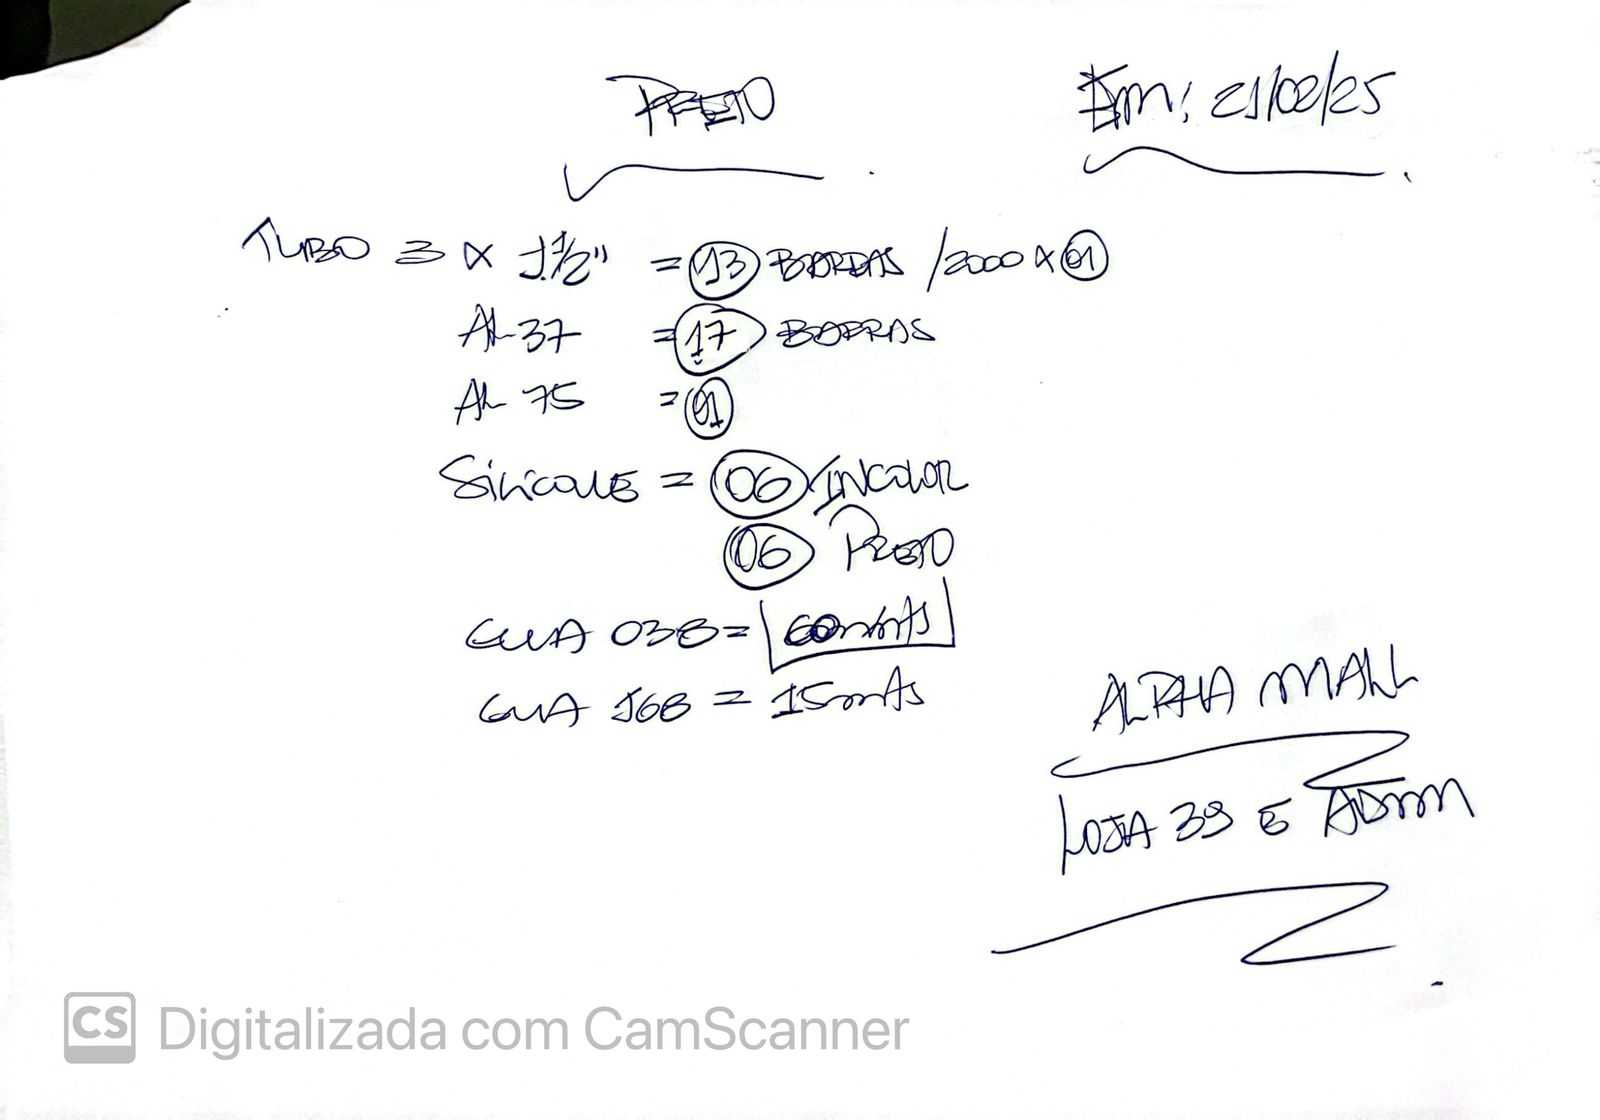 PRETO
Em: 21/02/25
TUBO 3 x 1.1/2" = 13 BARRAS /2000 x 01
AL 37 = 17 BARRAS
AL 75 = 01
SILICONE = 06 INCOLOR
06 PRETO
GUA 038 = 60mts
GUA 168 = 15mts
ALPHA MALL
LOJA 39 E ADM
CS Digitalizada com CamScanner